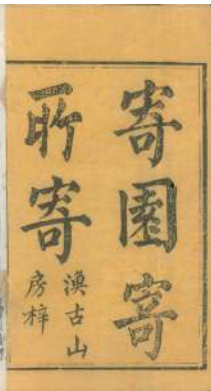 寄園寄
所寄
漁古山
房梓